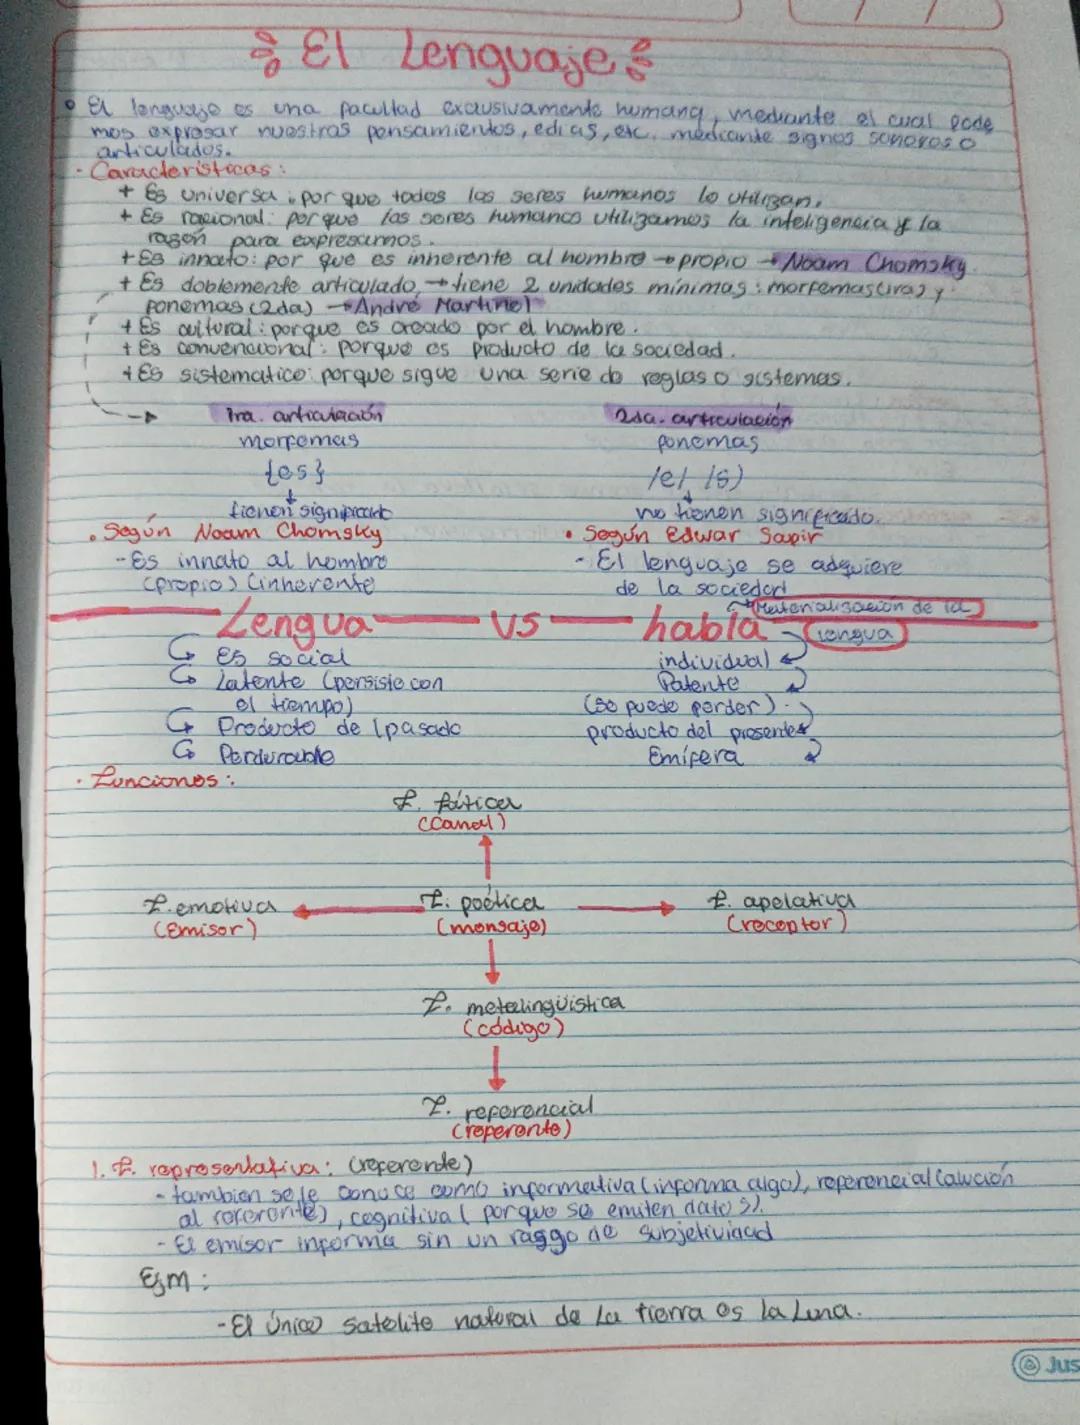 El Lenguaje
El lenguaje es una facultad exclusivamente humana, mediante el cual pode
mos expresar nuestros pensamientos, edias, etc. mediante signos sonoros o
articulados.
· Características:
+ Es universal: por que todos los seres humanos lo utilizan.
+ Es racional: porque los seres humanos utilizamos la inteligencia y la
razón para expresarnos.
+ Es innato: por que es inherente al hombre → propio → Noam Chomsky
+ Es doblemente articulado, → tiene 2 unidades mínimas: morfemas (1ra) y
fonemas (2da) → André Martinet
+ Es cultural: porque es creado por el hombre.
+ Es convencional: porque es producto de la sociedad.
+ Es sistematico: porque sigue una serie de reglas o sistemas.
1ra. articulación 2da. articulación
morfemas fonemas
{es} /e/ /s/
tienen significado no tienen significado.
· Según Noam Chomsky · Según Edwar Sapir
- Es innato al hombre - El lenguaje se adquiere
(propio) (inherente) de la sociedad
Materialización de la
Lengua VS habla lengua
Es social individual
Latente (persiste con Patente
el tiempo) (se puede perder)
Producto del pasado producto del presente
Perdurable Emífera
· Funciones:
F. fática
(Canal)
F. emotiva F. poética F. apelativa
(Emisor) (mensaje) (receptor)
F. metalingüística
(código)
F. referencial
(referente)
1. F. representativa: (referente)
- tambien se le conoce como informativa (informa algo), referencial (alución
al referente), cognitiva (porque se emiten datos).
- El emisor informa sin un raggo de subjetividad
Ejm:
- El único satelite natural de La tierra es La Luna.
Jus